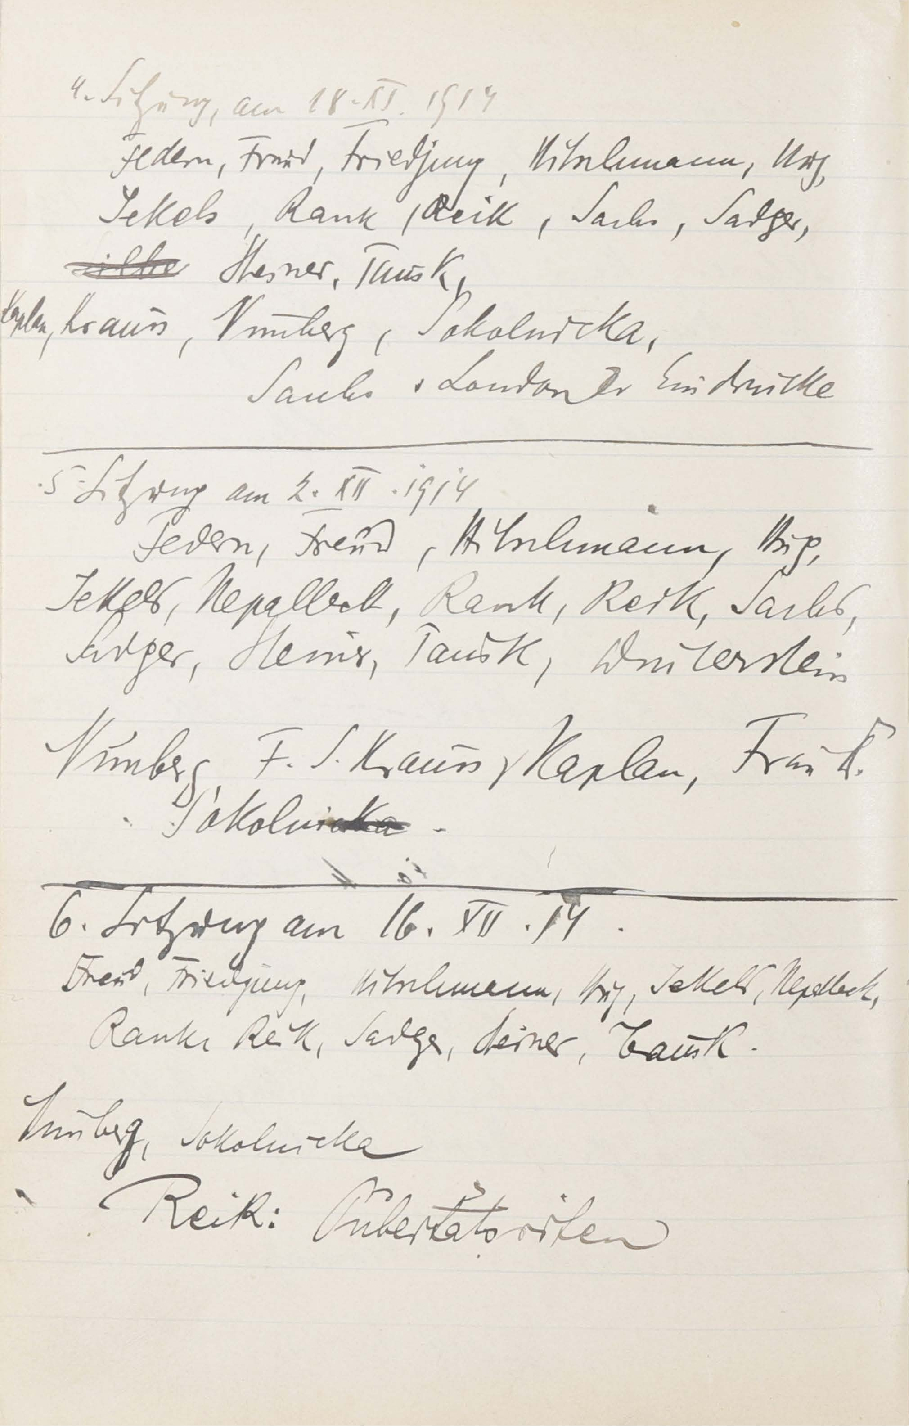 4. Sitzung, am 18. XI. 1914
Federn, Freud, Friedjung, Hitschmann, Hug,
Jekels, Rank, Reik, Sachs, Sadger,
Steiner, Tausk,
Kaplan, Krauss, Nunberg, Sokolnicka,
Sachs: Londoner Eindrücke
5. Sitzung am 2. XII. 1914
Federn, Freud, Hitschmann, Hug,
Jekels, Nepalleck, Rank, Reik, Sachs,
Sadger, Steiner, Tausk, Winterstein
Nunberg F. S. Krauss, Kaplan, Frau K.
Sokolnicka.
6. Sitzung am 16. XII. 14.
Freud, Friedjung, Hitschmann, Hug, Jekels, Nepalleck,
Rank, Reik, Sadger, Steiner, Tausk.
Nunberg, Sokolnicka
Reik: Pubertätsriten